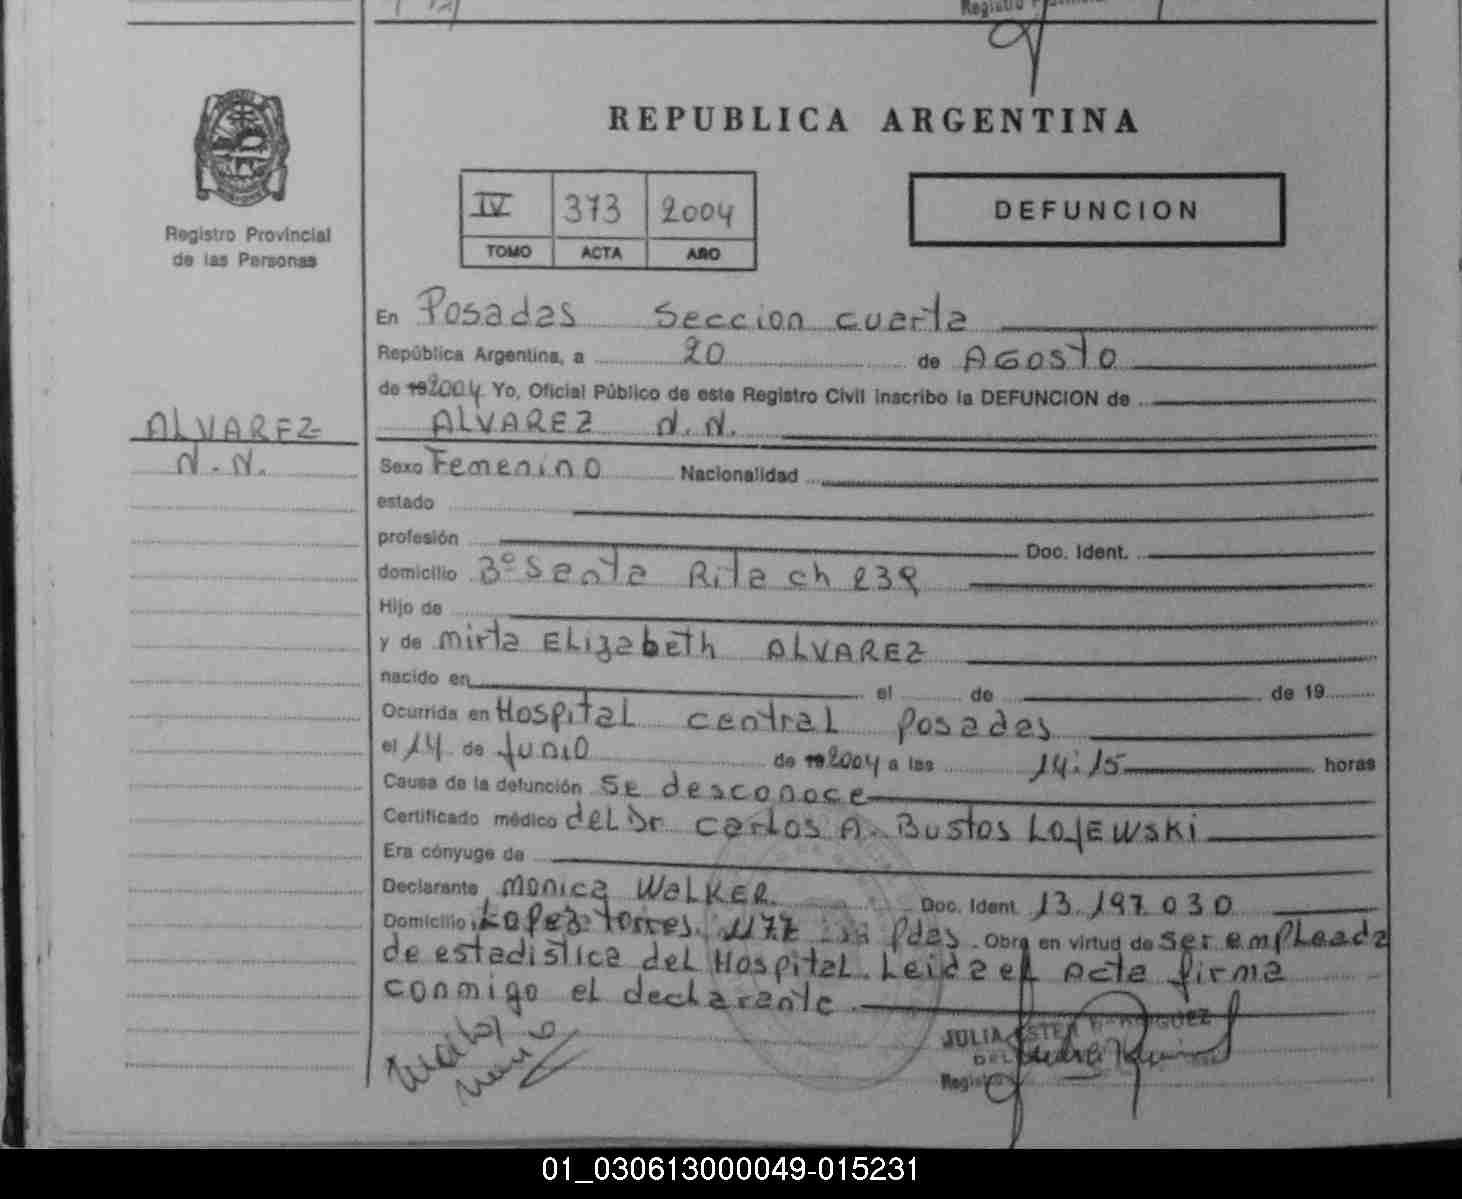 REPUBLICA ARGENTINA
Registro Provincial
de las Personas
IV 373 2004
TOMO ACTA AÑO
DEFUNCION
En Posadas Seccion cuarta
República Argentina, a 20 de AGOSTO
de 19 2004 Yo, Oficial Público de este Registro Civil inscribo la DEFUNCION de
ALVAREZ N.N.
ALVAREZ
N.N.
Sexo Femenino Nacionalidad
estado
profesión Doc. Ident.
domicilio 3º Santa Rita ch 239
Hijo de
y de Mirta Elizabeth ALVAREZ
nacido en el de de 19
Ocurrida en Hospital central Posadas
el 14 de Junio de 19 2004 a las 14:15 horas
Causa de la defunción Se desconoce
Certificado médico del Dr. Carlos A. Bustos Lojewski
Era cónyuge de
Declarante Monica Walker Doc. Ident. 13.197.030
Domicilio Lopez Torres 1177 Pdas. Obra en virtud de ser empleada
de estadistica del Hospital. Leida el Acta firma
conmigo el declarante.
JULIA ESTER
01_030613000049-015231